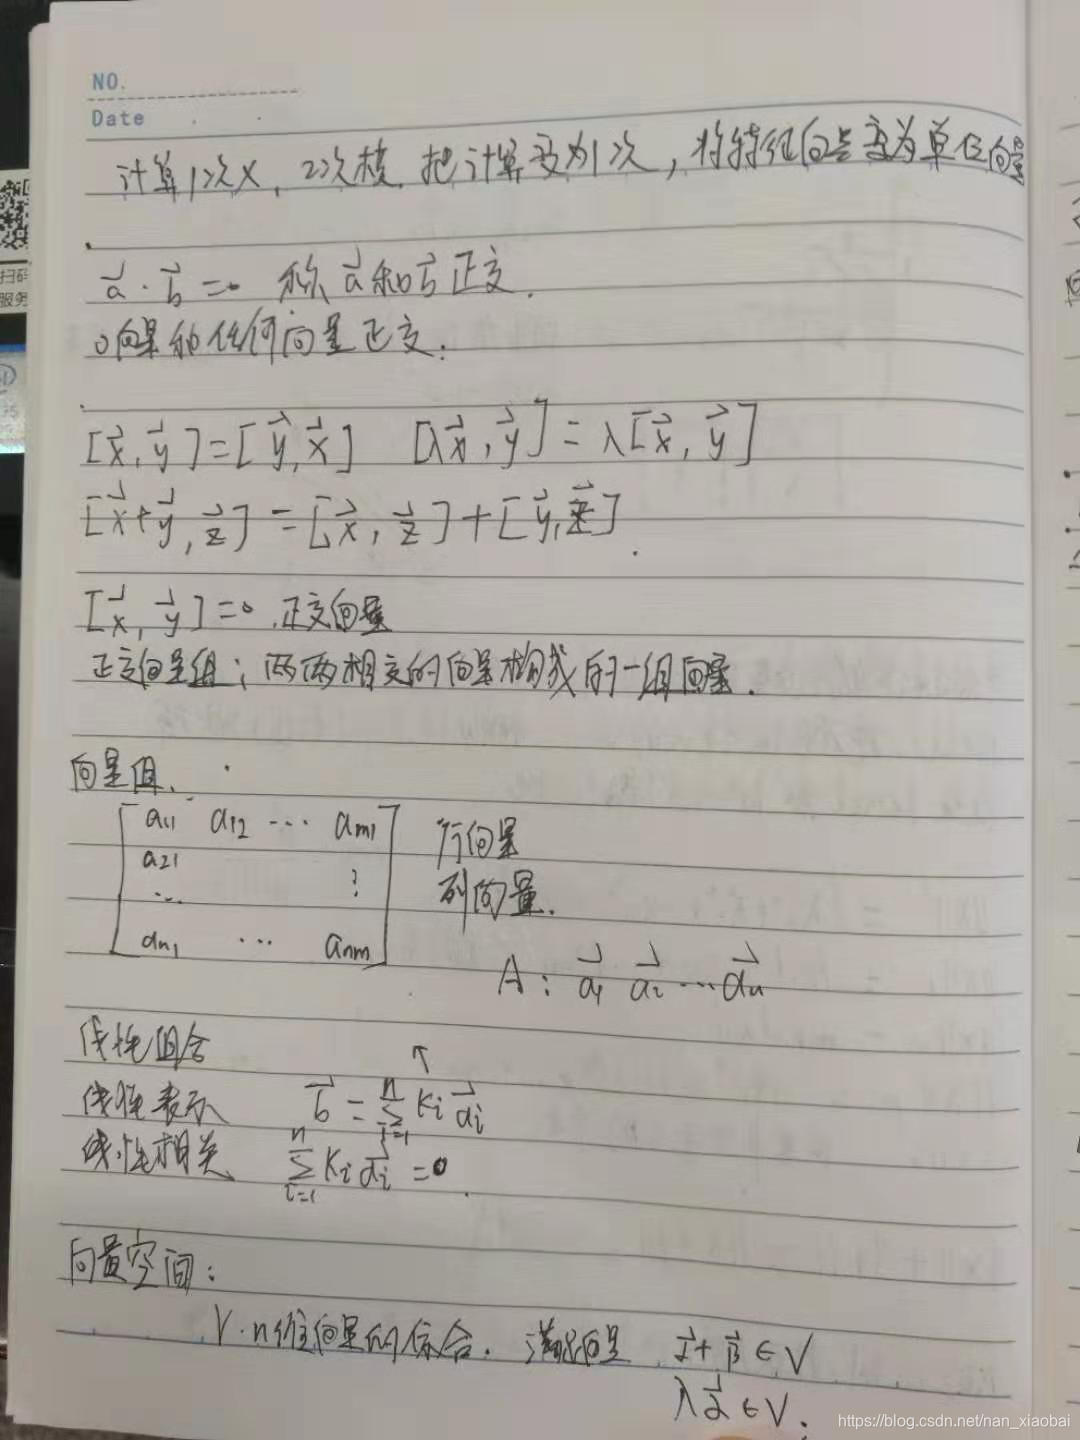 NO.
Date
计算1次×，2次模，把计算变为1次，将特征向量变为单位向量
扫码
服务
a⃗·b⃗=0 称a⃗和b⃗正交.
0向量和任何向量正交.
[x⃗,y⃗]=[y⃗,x⃗] [λx⃗,y⃗]=λ[x⃗,y⃗]
[x⃗+y⃗,z⃗]=[x⃗,z⃗]+[y⃗,z⃗].
[x⃗,y⃗]=0.正交向量
正交向量组；两两相交的向量构成的一组向量.
向量组.
a11 a12 ··· am1 行向量
a21 ⋮ 列向量.
···
an1 ··· anm
A：a⃗1 a⃗2 ··· a⃗n
线性组合 ↑
线性表示 b⃗=∑ⁿᵢ₌₁ Ki a⃗i
线性相关 ∑ⁿᵢ₌₁ Ki a⃗i=0.
向量空间：
V·n维向量的综合. 满足向量 α⃗+β⃗∈V
λα⃗∈V.
https://blog.csdn.net/nan_xiaobai